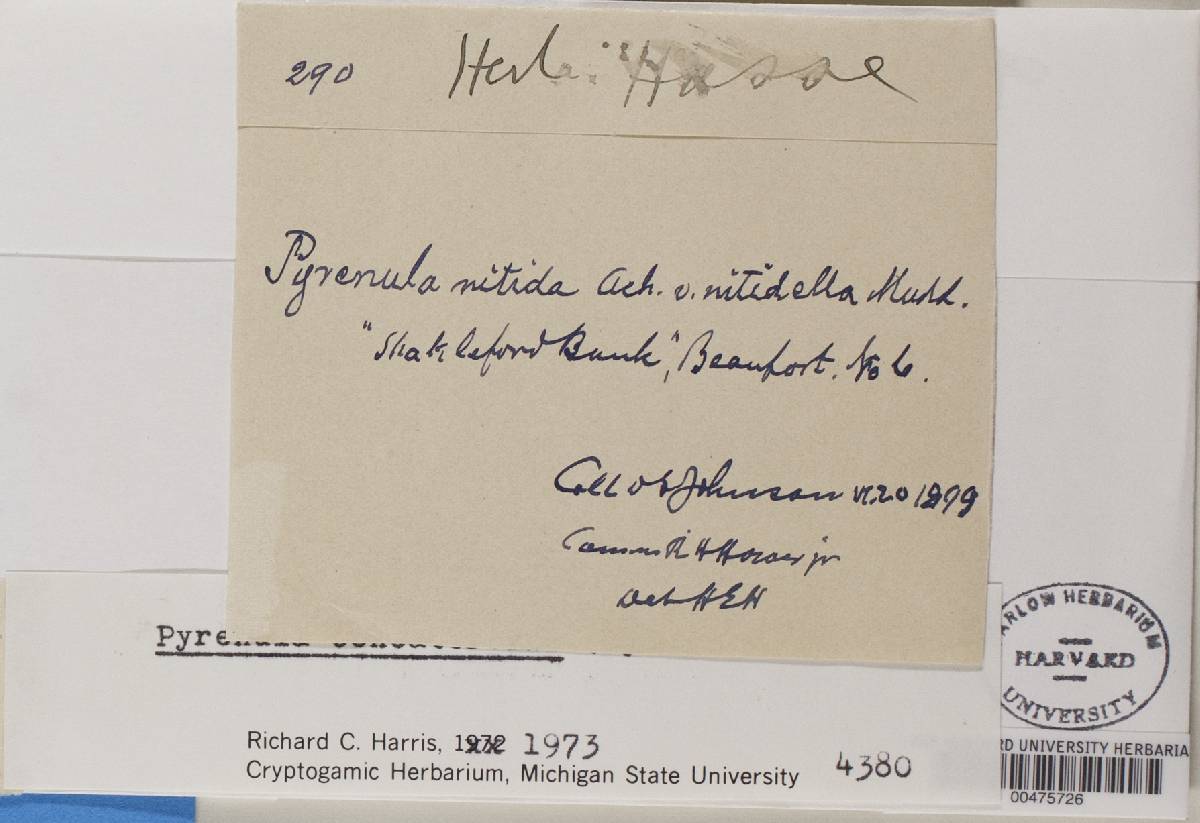 290 Herb. Hasse
Pyrenula nitida Ach. v. nitidella Mudd.
"Shakleford Bank", Beaufort. No C.
Coll D S Johnson VI.20 1899
Comm R H Howe jr
Det H E H
Pyrenula
Richard C. Harris, 1972 1973
Cryptogamic Herbarium, Michigan State University
4380
ARLOW HERBARIUM
HARVARD
UNIVERSITY
RD UNIVERSITY HERBARIA
00475726